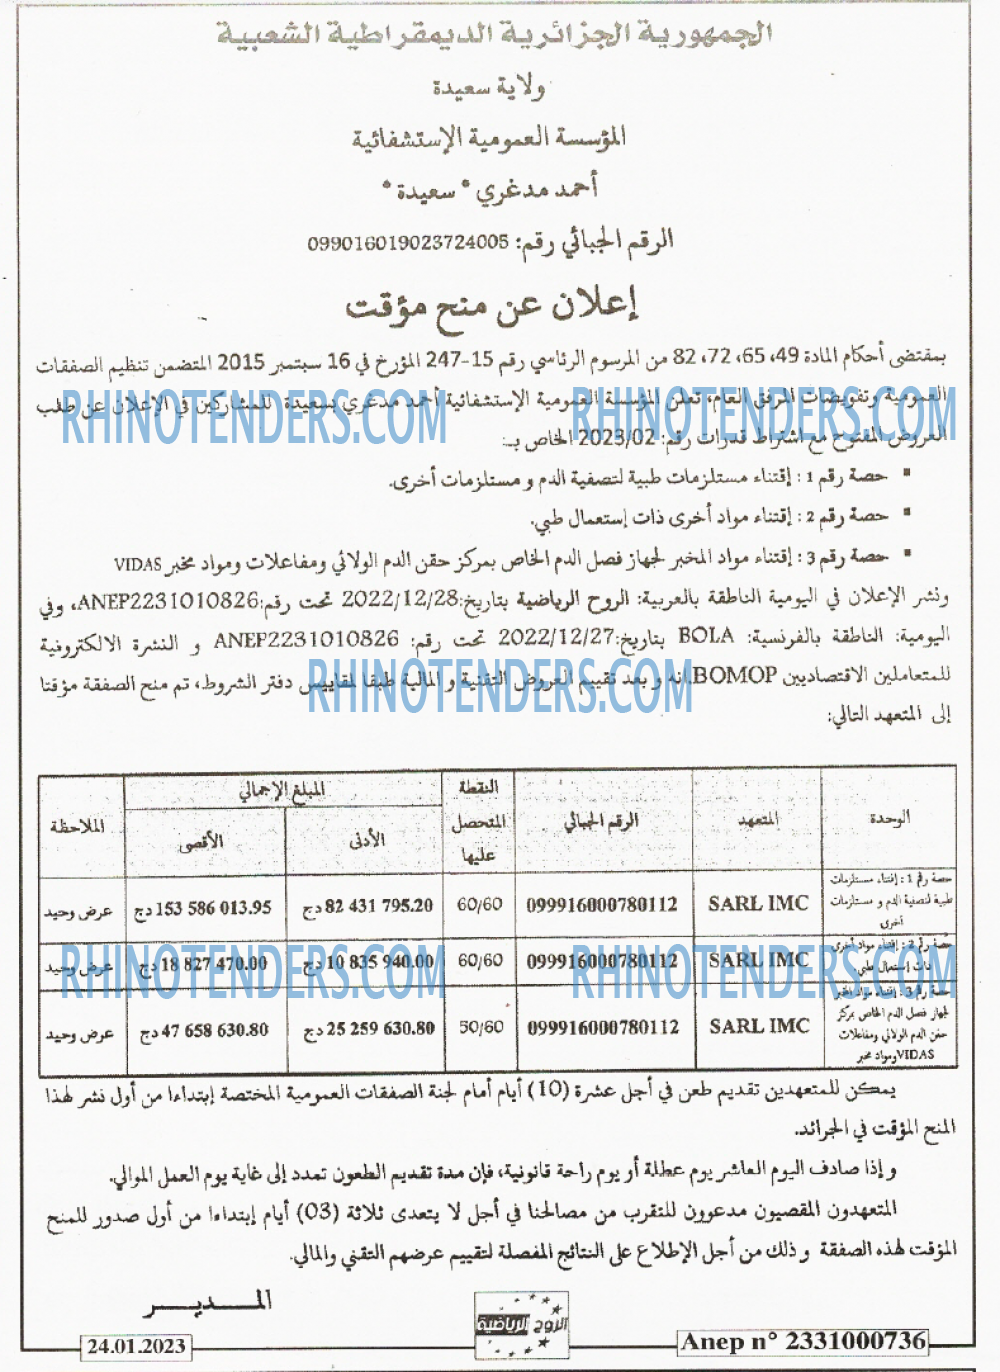 الجمهورية الجزائرية الديمقراطية الشعبية
ولاية سعيدة
المؤسسة العمومية الإستشفائية
أحمد مدغري * سعيدة *
الرقم الجبائي رقم: 099016019023724005
إعلان عن منح مؤقت
بمقتضى أحكام المادة 49، 65، 72، 82 من المرسوم الرئاسي رقم 15-247 المؤرخ في 16 سبتمبر 2015 المتضمن تنظيم الصفقات
العمومية وتفويضات المرفق العام، تعلن المؤسسة العمومية الإستشفائية أحمد مدغري بسعيدة للمشاركين في الإعلان عن طلب
العروض المفتوح مع اشتراط قدرات رقم: 2023/02 الخاص بـ:
RHINOTENDERS.COM RHINOTENDERS.COM
▪ حصة رقم 1 : إقتناء مستلزمات طبية لتصفية الدم و مستلزمات أخرى.
▪ حصة رقم 2 : إقتناء مواد أخرى ذات إستعمال طبي.
▪ حصة رقم 3 : إقتناء مواد المخبر لجهاز فصل الدم الخاص بمركز حقن الدم الولائي ومفاعلات ومواد مخبر VIDAS
ونشر الإعلان في اليومية الناطقة بالعربية: الروح الرياضية بتاريخ:2022/12/28 تحت رقم:ANEP2231010826، وفي
اليومية: الناطقة بالفرنسية: BOLA بتاريخ:2022/12/27 تحت رقم: ANEP2231010826 و النشرة الالكترونية
للمتعاملين الاقتصاديين BOMOP.إنه و بعد تقييم العروض التقنية و المالية طبقا لمقاييس دفتر الشروط، تم منح الصفقة مؤقتا
إلى المتعهد التالي:
RHINOTENDERS.COM
الوحدة المتعهد الرقم الجبائي النقطة المتحصل عليها المبلغ الإجمالي الملاحظة
الأدنى الأقصى
حصة رقم 1 : إقتناء مستلزمات
طبية لتصفية الدم و مستلزمات
أخرى
SARL IMC 099916000780112 60/60 82 431 795.20 دج 153 586 013.95 دج عرض وحيد
حصة رقم 2 : إقتناء مواد أخرى
ذات إستعمال طبي
SARL IMC 099916000780112 60/60 10 835 940.00 دج 18 827 470.00 دج عرض وحيد
RHINOTENDERS.COM RHINOTENDERS.COM
حصة رقم 3 : إقتناء مواد المخبر
لجهاز فصل الدم الخاص بمركز
حقن الدم الولائي ومفاعلات
ومواد مخبر VIDAS
SARL IMC 099916000780112 50/60 25 259 630.80 دج 47 658 630.80 دج عرض وحيد
يمكن للمتعهدين تقديم طعن في أجل عشرة (10) أيام أمام لجنة الصفقات العمومية المختصة إبتداءا من أول نشر لهذا
المنح المؤقت في الجرائد.
و إذا صادف اليوم العاشر يوم عطلة أو يوم راحة قانونية، فإن مدة تقديم الطعون تمدد إلى غاية يوم العمل الموالي.
المتعهدون المقصيون مدعوون للتقرب من مصالحنا في أجل لا يتعدى ثلاثة (03) أيام إبتداءا من أول صدور للمنح
المؤقت لهذه الصفقة و ذلك من أجل الإطلاع على النتائج المفصلة لتقييم عرضهم التقني والمالي.
المـديـر
24.01.2023
الروح الرياضية
Anep n° 2331000736